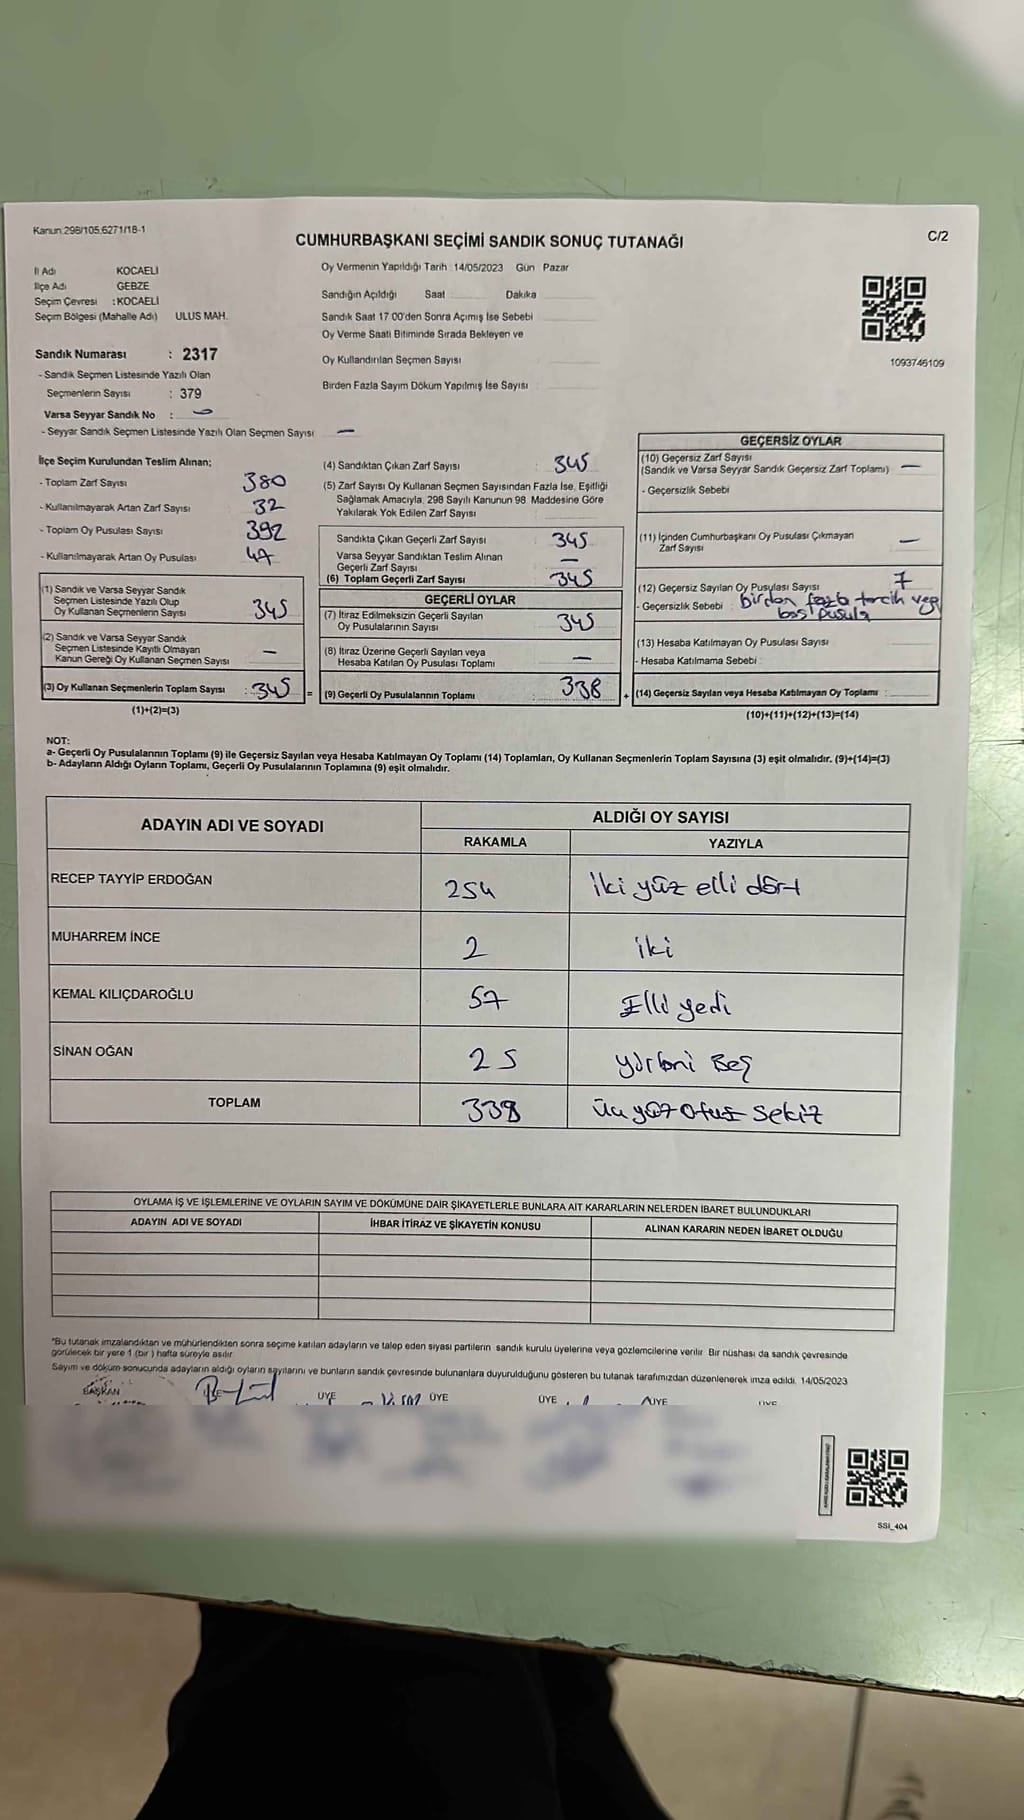 Kanun:298/105,6271/18-1
CUMHURBAŞKANI SEÇİMİ SANDIK SONUÇ TUTANAĞI
C/2
İl Adı KOCAELİ
İlçe Adı GEBZE
Seçim Çevresi : KOCAELİ
Seçim Bölgesi (Mahalle Adı) ULUS MAH.
Sandık Numarası : 2317
- Sandık Seçmen Listesinde Yazılı Olan
Seçmenlerin Sayısı : 379
Varsa Seyyar Sandık No :
- Seyyar Sandık Seçmen Listesinde Yazılı Olan Seçmen Sayısı —
Oy Vermenin Yapıldığı Tarih :14/05/2023 Gün Pazar
Sandığın Açıldığı Saat : Dakika
Sandık Saat 17:00'den Sonra Açımış İse Sebebi
Oy Verme Saati Bitiminde Sırada Bekleyen ve
Oy Kullandırılan Seçmen Sayısı
Birden Fazla Sayım Döküm Yapılmış İse Sayısı :
1093746109
İlçe Seçim Kurulundan Teslim Alınan;
- Toplam Zarf Sayısı 380
- Kullanılmayarak Artan Zarf Sayısı 32
- Toplam Oy Pusulası Sayısı 392
- Kullanılmayarak Artan Oy Pusulası 47
(1) Sandık ve Varsa Seyyar Sandık
Seçmen Listesinde Yazılı Olup
Oy Kullanan Seçmenlerin Sayısı 345
(2) Sandık ve Varsa Seyyar Sandık
Seçmen Listesinde Kayıtlı Olmayan
Kanun Gereği Oy Kullanan Seçmen Sayısı —
(3) Oy Kullanan Seçmenlerin Toplam Sayısı : 345 =
(1)+(2)=(3)
(4) Sandıktan Çıkan Zarf Sayısı : 345
(5) Zarf Sayısı Oy Kullanan Seçmen Sayısından Fazla İse, Eşitliği
Sağlamak Amacıyla, 298 Sayılı Kanunun 98. Maddesine Göre
Yakılarak Yok Edilen Zarf Sayısı
Sandıkta Çıkan Geçerli Zarf Sayısı 345
Varsa Seyyar Sandıktan Teslim Alınan
Geçerli Zarf Sayısı —
(6) Toplam Geçerli Zarf Sayısı 345
GEÇERLİ OYLAR
(7) İtiraz Edilmeksizin Geçerli Sayılan
Oy Pusulalarının Sayısı 345
(8) İtiraz Üzerine Geçerli Sayılan veya
Hesaba Katılan Oy Pusulası Toplamı —
(9) Geçerli Oy Pusulalarının Toplamı : 338 +
GEÇERSİZ OYLAR
(10) Geçersiz Zarf Sayısı
(Sandık ve Varsa Seyyar Sandık Geçersiz Zarf Toplamı) —
- Geçersizlik Sebebi
(11) İçinden Cumhurbaşkanı Oy Pusulası Çıkmayan
Zarf Sayısı —
(12) Geçersiz Sayılan Oy Pusulası Sayısı : 7
- Geçersizlik Sebebi : birden fazla tercih veya
boş pusula
(13) Hesaba Katılmayan Oy Pusulası Sayısı
- Hesaba Katılmama Sebebi :
(14) Geçersiz Sayılan veya Hesaba Katılmayan Oy Toplamı :
(10)+(11)+(12)+(13)=(14)
NOT:
a- Geçerli Oy Pusulalarının Toplamı (9) ile Geçersiz Sayılan veya Hesaba Katılmayan Oy Toplamı (14) Toplamları, Oy Kullanan Seçmenlerin Toplam Sayısına (3) eşit olmalıdır. (9)+(14)=(3)
b- Adayların Aldığı Oyların Toplamı, Geçerli Oy Pusulalarının Toplamına (9) eşit olmalıdır.
ADAYIN ADI VE SOYADI ALDIĞI OY SAYISI
RAKAMLA YAZIYLA
RECEP TAYYİP ERDOĞAN 254 iki yüz elli dört
MUHARREM İNCE 2 iki
KEMAL KILIÇDAROĞLU 57 Elli yedi
SİNAN OĞAN 25 yirmi Beş
TOPLAM 338 üç yüz otuz sekiz
OYLAMA İŞ VE İŞLEMLERİNE VE OYLARIN SAYIM VE DÖKÜMÜNE DAİR ŞİKAYETLERLE BUNLARA AİT KARARLARIN NELERDEN İBARET BULUNDUKLARI
ADAYIN ADI VE SOYADI İHBAR İTİRAZ VE ŞİKAYETİN KONUSU ALINAN KARARIN NEDEN İBARET OLDUĞU
*Bu tutanak imzalandıktan ve mühürlendikten sonra seçime katılan adayların ve talep eden siyasi partilerin sandık kurulu üyelerine veya gözlemcilerine verilir. Bir nüshası da sandık çevresinde
görülecek bir yere 1 (bir ) hafta süreyle asılır.
Sayım ve döküm sonucunda adayların aldığı oyların sayılarını ve bunların sandık çevresinde bulunanlara duyurulduğunu gösteren bu tutanak tarafımızdan düzenlenerek imza edildi. 14/05/2023
BAŞKAN ÜYE ÜYE ÜYE ÜYE ÜYE
SSI_404